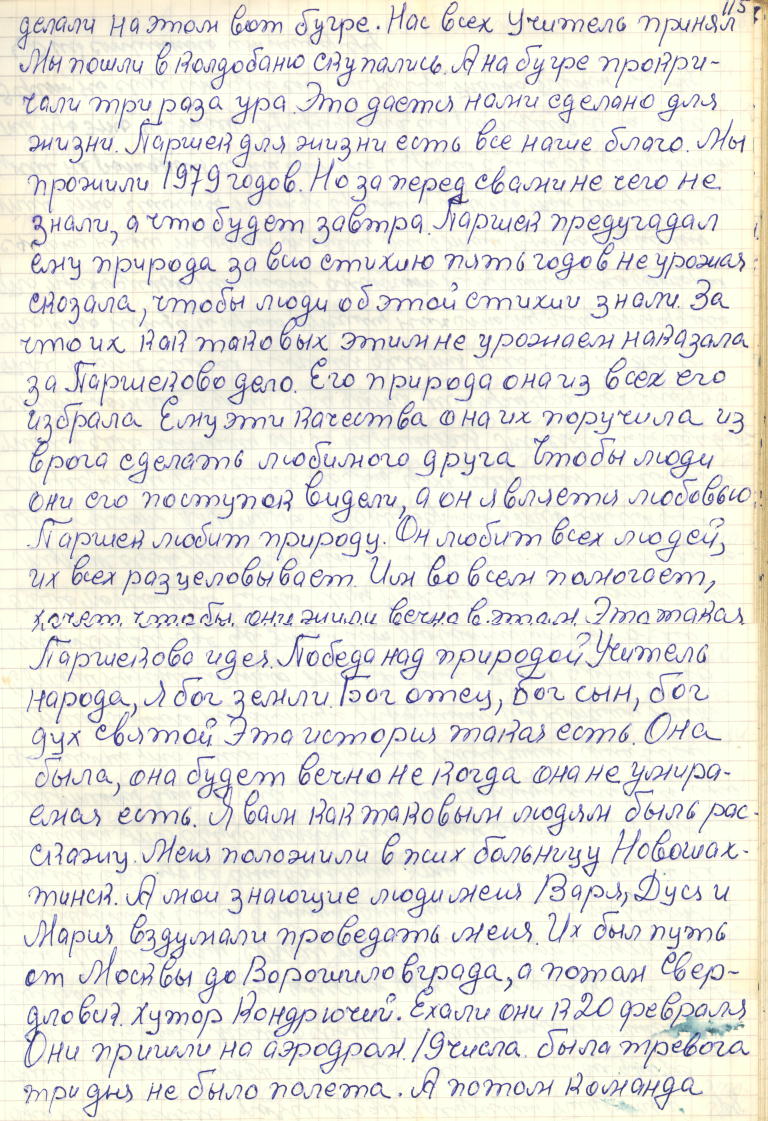 115
делали на этом вот бугре. Нас всех Учитель принял
Мы пошли в колдобаню скупались. А на бугре прокри-
чали три раза ура. Это дается нами сделано для
жизни. Паршек для жизни есть все наше благо. Мы
прожили 1979 годов. Но за перед свами не чего не
знали, а что будет завтра. Паршек предугадал
ему природа за всю стихию пять годов не урожая
сказала, чтобы люди об этой стихии знали. За
что их как таковых этим не урожаем наказала
за Паршеково дело. Его природа она из всех его
избрала Ему эти качества она их поручила из
врага сделать любимого друга Чтобы люди
они его поступок видели, а он является любовью
Паршек любит природу. Он любит всех людей,
их всех разцеловывает. Им во всем помогает,
хочет, чтобы они жили вечно в этом. Это такая
Паршекова идея. Победа над природой Учитель
народа, я бог земли. Бог отец, Бог сын, бог
дух святой Эта история такая есть. Она
была, она будет вечно не когда она не умира-
емая есть. Я вам как таковым людям быль рас-
скажу. Меня положили в псих больницу Новошах-
тинск. А мои знающие люди меня Варя, Дуся и
Мария вздумали проведать меня. Их был путь
от Москвы до Ворошиловграда, а потом Свер-
дловск. хутор Кондрючий. Ехали они к 20 февраля
Они пришли на аэродром. 19 числа была тревога
три дня не было полета. А потом команда